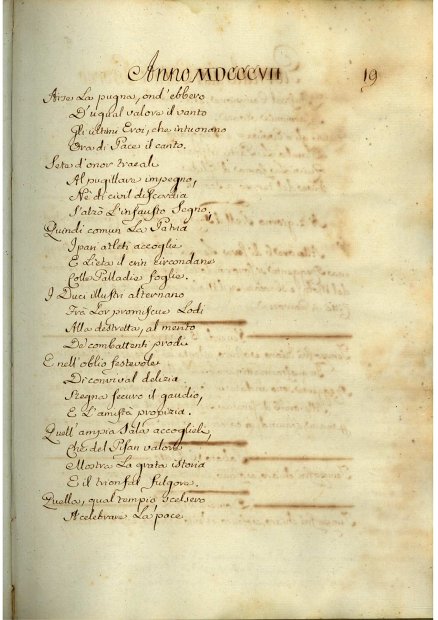 Anno MDCCCVII
19
Arse La pugna, ond' ebbero
D'ugual valore il vanto
Gli ultimi Eroi, che intuonano
Ora di Pace il canto.
Sete d'onor traeali
Al pugillare impegno,
Nè di civil discordia
S'alzò L'infausto Segno,
Quindi comun La Patria
I pari atleti accoglie
E Lieta il crin circondane
Colle Palladie foglie.
I Duci illustri alternano
Frà Lor promiscue Lodi
Alla destrezza, al merito
De' combattenti prodi
E nell' oblio festevole
Di convival delizia
Regna securo il gaudio,
E L'amistà propizia.
Quell' ampia Sala accoglieli,
Che del Pisan valore
Mostra La grata istoria
E il trionfal fulgore.
Quella, qual tempio scelsero
A celebrare La pace